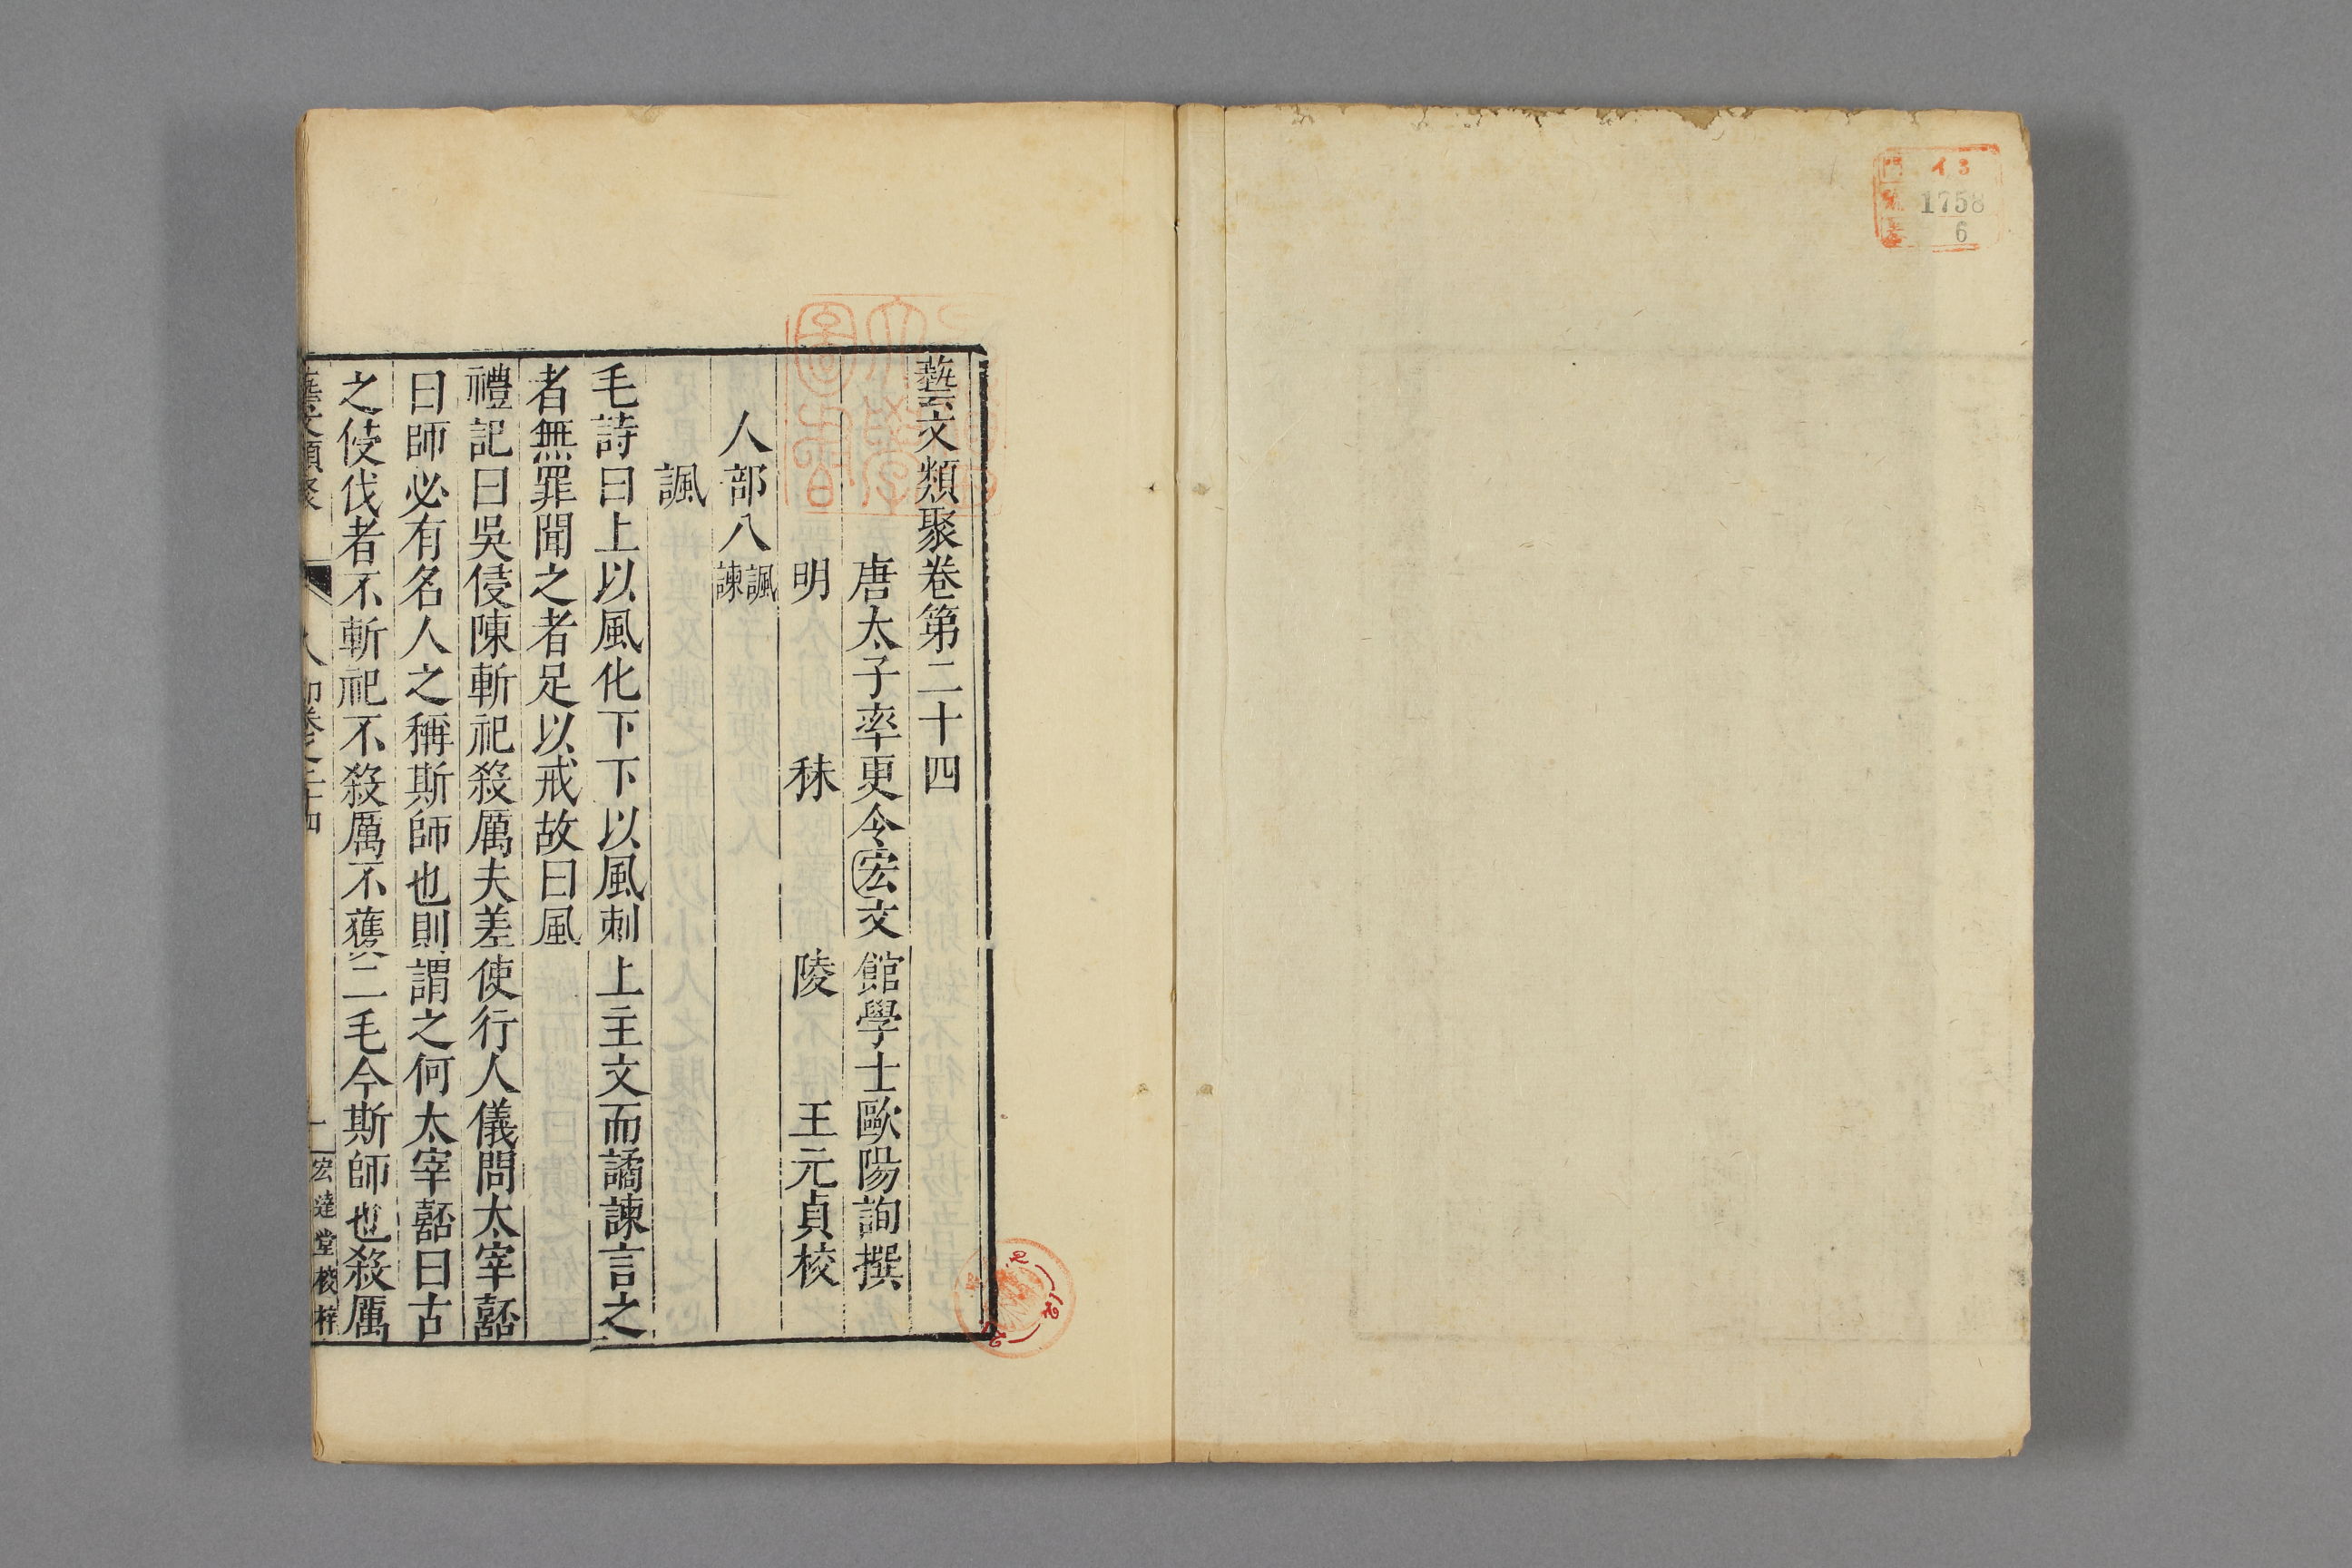 イ3
1758
6
藝文類聚卷第二十四
唐太子率更令宏文館學士歐陽詢撰
明　秣　陵　王元貞校
人部八 諷諫
諷
毛詩曰上以風化下下以風刺上主文而譎諫言之
者無罪聞之者足以戒故曰風
禮記曰吳侵陳斬祀殺厲夫差使行人儀問太宰嚭
曰師必有名人之稱斯師也則謂之何太宰嚭曰古
之侵伐者不斬祀不殺厲不獲二毛今斯師也殺厲
藝文類聚　人部卷之二十四　一　宏達堂校梓